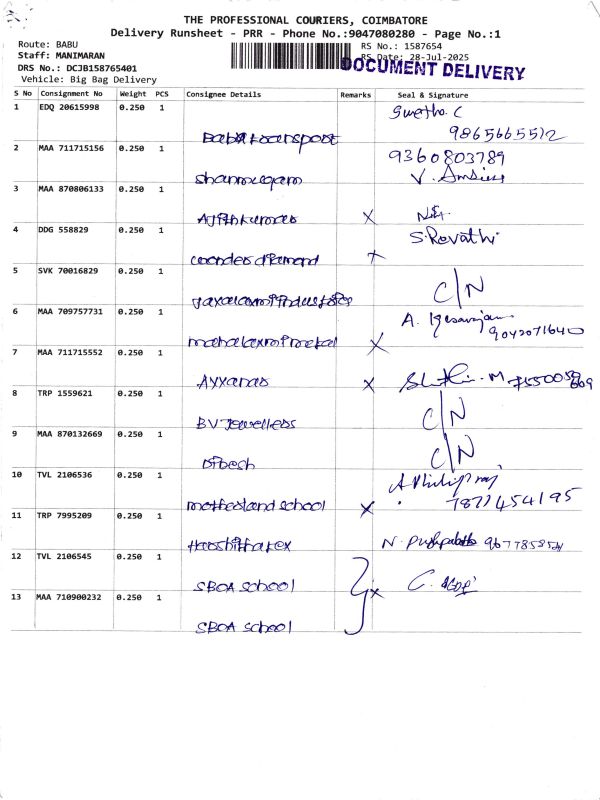 THE PROFESSIONAL COURIERS, COIMBATORE
Delivery Runsheet - PRR - Phone No.:9047080280 - Page No.:1
Route: BABU
RS No.: 1587654
Staff: MANIMARAN
RS Date: 28-Jul-2025
DOCUMENT DELIVERY
DRS No.: DCJB158765401
Vehicle: Big Bag Delivery
S No Consignment No Weight PCS Consignee Details Remarks Seal & Signature
1 EDQ 20615998 0.250 1 Swetha. C
9865665512
2 MAA 711715156 0.250 1 9360803789
shanmugam V.
3 MAA 870806133 0.250 1
Ajithkumar X
4 DDG 558829 0.250 1 S.Revathi
wonder diamond x
5 SVK 70016829 0.250 1 C/N
6 MAA 709757731 0.250 1 A.
mahalaxmi metal X 9042071640
7 MAA 711715552 0.250 1
Ayyanar X M
8 TRP 1559621 0.250 1 C/N
BV Jewellers
9 MAA 870132669 0.250 1 C/N
10 TVL 2106536 0.250 1 A Philip raj
motherland school X 7871454195
11 TRP 7995209 0.250 1 N. Pushpa
12 TVL 2106545 0.250 1 C.
SBOA school x
13 MAA 710900232 0.250 1
SBOA school